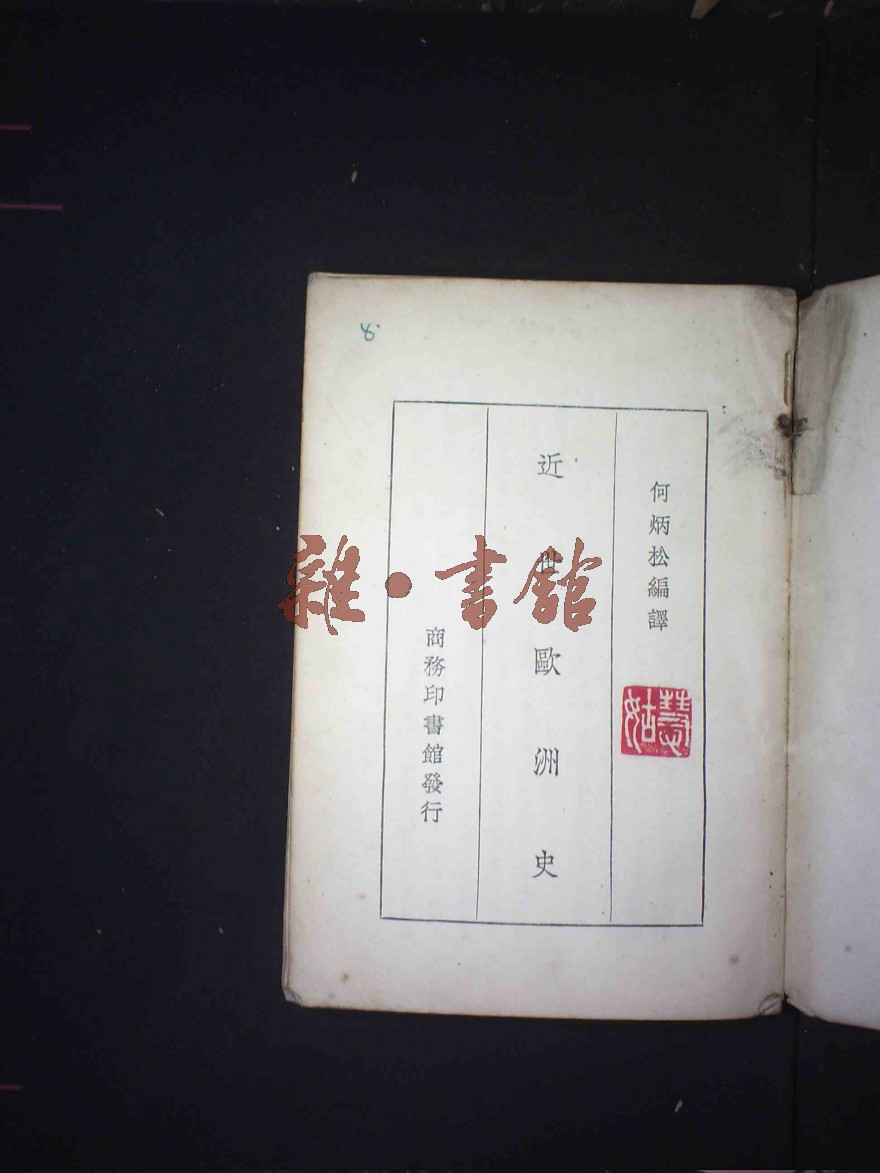 8
何炳松編譯
慧姑
近世歐洲史
商務印書館發行
雜·書館